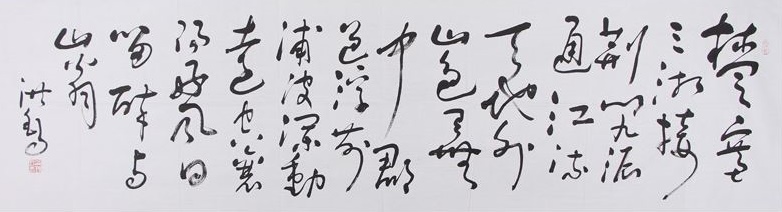 楚塞
三湘接
荆门九派
通江流
天地外
山色有無
中郡
邑浮前
浦波澜動
遠空襄
陽好風日
留醉与
山翁
洪